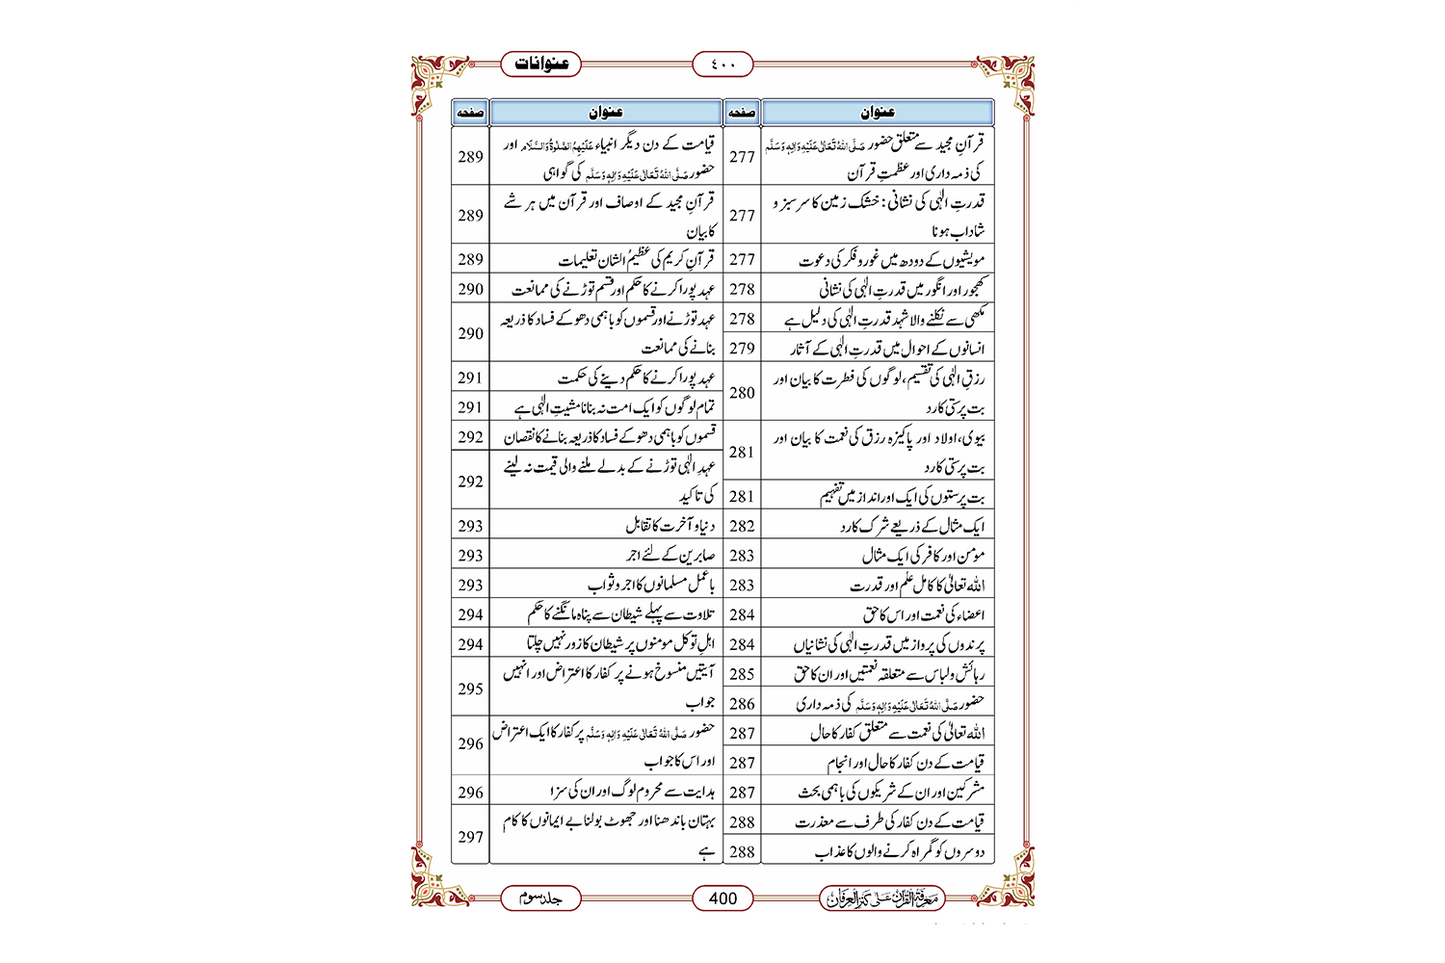 عنوانات
٤٠٠
عنوان صفحہ
قرآنِ مجید سے متعلق حضور صَلَّی اللہُ تَعَالٰی عَلَیْہِ وَاٰلِہٖ وَسَلَّم
کی ذمہ داری اور عظمتِ قرآن 277
قدرتِ الٰہی کی نشانی: خشک زمین کا سرسبز و
شاداب ہونا 277
مویشیوں کے دودھ میں غور و فکر کی دعوت 277
کھجور اور انگور میں قدرتِ الٰہی کی نشانی 278
مکھی سے نکلنے والا شہد قدرتِ الٰہی کی دلیل ہے 278
انسانوں کے احوال میں قدرتِ الٰہی کے آثار 279
رزقِ الٰہی کی تقسیم، لوگوں کی فطرت کا بیان اور
بت پرستی کا رد 280
بیوی، اولاد اور پاکیزہ رزق کی نعمت کا بیان اور
بت پرستی کا رد 281
بت پرستوں کی ایک اور انداز میں تفہیم 281
ایک مثال کے ذریعے شرک کا رد 282
مومن اور کافر کی ایک مثال 283
اللہ تعالٰی کا کامل علم اور قدرت 283
اعضاء کی نعمت اور اس کا حق 284
پرندوں کی پرواز میں قدرتِ الٰہی کی نشانیاں 284
رہائش و لباس سے متعلقہ نعمتیں اور ان کا حق 285
حضور صَلَّی اللہُ تَعَالٰی عَلَیْہِ وَاٰلِہٖ وَسَلَّم کی ذمہ داری 286
اللہ تعالٰی کی نعمت سے متعلق کفار کا حال 287
قیامت کے دن کفار کا حال اور انجام 287
مشرکین اور ان کے شریکوں کی باہمی بحث 287
قیامت کے دن کفار کی طرف سے معذرت 288
دوسروں کو گمراہ کرنے والوں کا عذاب 288
عنوان صفحہ
قیامت کے دن دیگر انبیاء عَلَیْہِمُ الصَّلٰوۃُ وَالسَّلَام اور
حضور صَلَّی اللہُ تَعَالٰی عَلَیْہِ وَاٰلِہٖ وَسَلَّم کی گواہی 289
قرآنِ مجید کے اوصاف اور قرآن میں ہر شے
کا بیان 289
قرآنِ کریم کی عظیمُ الشان تعلیمات 289
عہد پورا کرنے کا حکم اور قسم توڑنے کی ممانعت 290
عہد توڑنے اور قسموں کو باہمی دھوکے فساد کا ذریعہ
بنانے کی ممانعت 290
عہد پورا کرنے کا حکم دینے کی حکمت 291
تمام لوگوں کو ایک امت نہ بنانا مشیتِ الٰہی ہے 291
قسموں کو باہمی دھوکے فساد کا ذریعہ بنانے کا نقصان 292
عہدِ الٰہی توڑنے کے بدلے ملنے والی قیمت نہ لینے
کی تاکید 292
دنیا و آخرت کا تقابل 293
صابرین کے لئے اجر 293
باعمل مسلمانوں کا اجر و ثواب 293
تلاوت سے پہلے شیطان سے پناہ مانگنے کا حکم 294
اہلِ توکل مومنوں پر شیطان کا زور نہیں چلتا 294
آیتیں منسوخ ہونے پر کفار کا اعتراض اور انہیں
جواب 295
حضور صَلَّی اللہُ تَعَالٰی عَلَیْہِ وَاٰلِہٖ وَسَلَّم پر کفار کا ایک اعتراض
اور اس کا جواب 296
ہدایت سے محروم لوگ اور ان کی سزا 296
بہتان باندھنا اور جھوٹ بولنا بے ایمانوں کا کام
ہے 297
معرفۃ القرآن علٰی کنز العرفان
400
جلد سوم